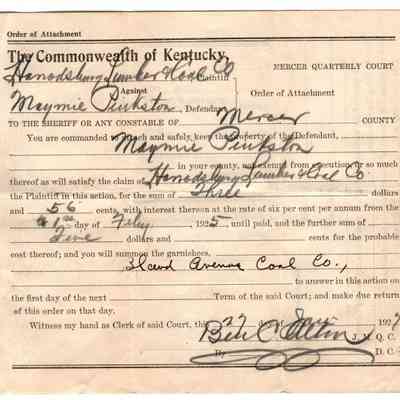 Order of Attachment
The Commonwealth of Kentucky,
MERCER QUARTERLY COURT
Harrodsburg Lumber & Coal Co Plaintiff
Against
Order of Attachment
Maymie Pinkston, Defendant
TO THE SHERIFF OR ANY CONSTABLE OF Mercer COUNTY
You are commanded to attach and safely keep the property of the Defendant,
Maymie Pinkston
in your county, not exempt from execution or so much
thereof as will satisfy the claim of Harrodsburg Lumber & Coal Co
the Plaintiff in this action, for the sum of Three dollars
and 56 cents, with interest thereon at the rate of six per cent per annum from the
1st day of Feby, 1925, until paid, and the further sum of
Five dollars and cents for the probable
cost thereof; and you will summon the garnishees,
Island Avenue Coal Co.,
to answer in this action on
the first day of the next Term of the said Court; and make due return
of this order on that day.
Witness my hand as Clerk of said Court, this 27 of 192
Ben C. Allin J. M. Q. C.
By D. C.